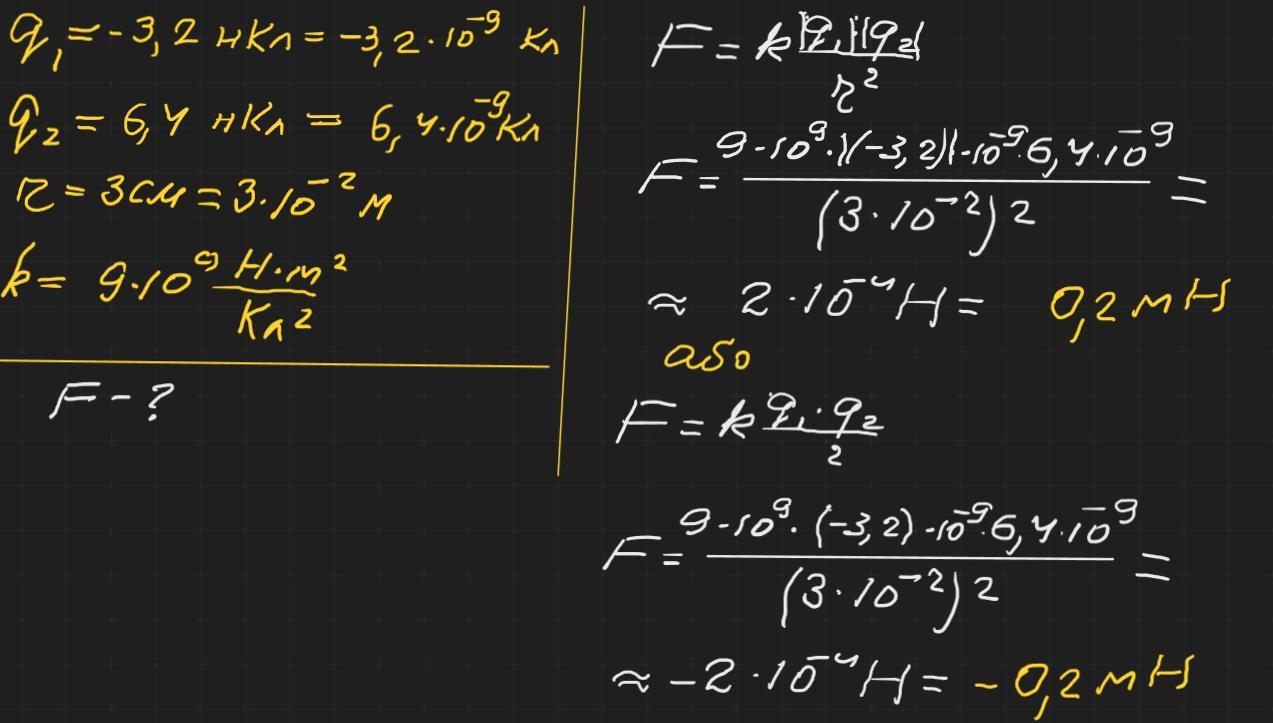 q₁ = -3,2 нКл = -3,2·10⁻⁹ Кл
q₂ = 6,4 нКл = 6,4·10⁻⁹ Кл
r = 3см = 3·10⁻² м
k = 9·10⁹ Н·м²/Кл²
F - ?
F = k |q₁||q₂|/r²
F = 9·10⁹·|(-3,2)|·10⁻⁹·6,4·10⁻⁹/(3·10⁻²)² =
≈ 2·10⁻⁴Н = 0,2 мН
або
F = k q₁·q₂/²
F = 9·10⁹·(-3,2)·10⁻⁹·6,4·10⁻⁹/(3·10⁻²)² =
≈ -2·10⁻⁴Н = -0,2 мН